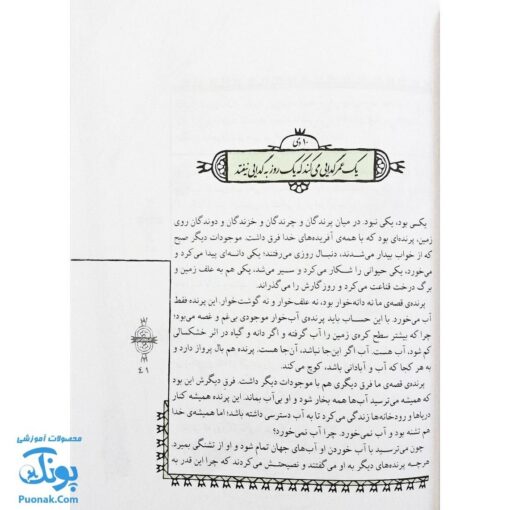 ۱۰ دی
یک عمر گدایی می‌کند که یک روز به گدایی نیفتد
یکی بود، یکی نبود. در میان پرندگان و چرندگان و خزندگان و دوندگان روی
زمین، پرنده‌ای بود که با همه‌ی آفریده‌های خدا فرق داشت. موجودات دیگر صبح
که از خواب بیدار می‌شدند، دنبال روزی می‌رفتند؛ یکی دانه‌ای پیدا می‌کرد و
می‌خورد، یکی حیوانی را شکار می‌کرد و سیر می‌شد، یکی هم به علف زمین و
برگ درخت قناعت می‌کرد و روزگارش را می‌گذراند.
پرنده‌ی قصه‌ی ما نه دانه‌خوار بود، نه علف‌خوار و نه گوشت‌خوار. این پرنده فقط
آب می‌خورد. با این حساب باید پرنده‌ی آب‌خوار موجودی بی‌غم و غصه می‌بود؛
چرا که بیشتر سطح کره‌ی زمین را آب گرفته و اگر دانه و گیاه در اثر خشکسالی
کم شود، آب هست. آب اگر این‌جا نباشد، آن‌جا هست. پرنده هم بال پرواز دارد و
به هر کجا که آب و آبادانی باشد، کوچ می‌کند.
پرنده‌ی قصه‌ی ما فرق دیگری هم با موجودات دیگر داشت. فرق دیگرش این بود
که همیشه می‌ترسید آب‌ها همه بخار شود و او بی‌آب بماند. این پرنده همیشه کنار
دریاها و رودخانه‌ها زندگی می‌کرد تا به آب دسترسی داشته باشد؛ اما همیشه‌ی خدا
هم تشنه بود و آب نمی‌خورد. چرا آب نمی‌خورد؟
چون می‌ترسید با آب خوردن او آب‌های جهان تمام شود و او از تشنگی بمیرد.
هرچه پرنده‌های دیگر به او می‌گفتند و نصیحتش می‌کردند که چرا این قدر به
۴۱
محصولات آموزشی
پونک
Puonak.Com